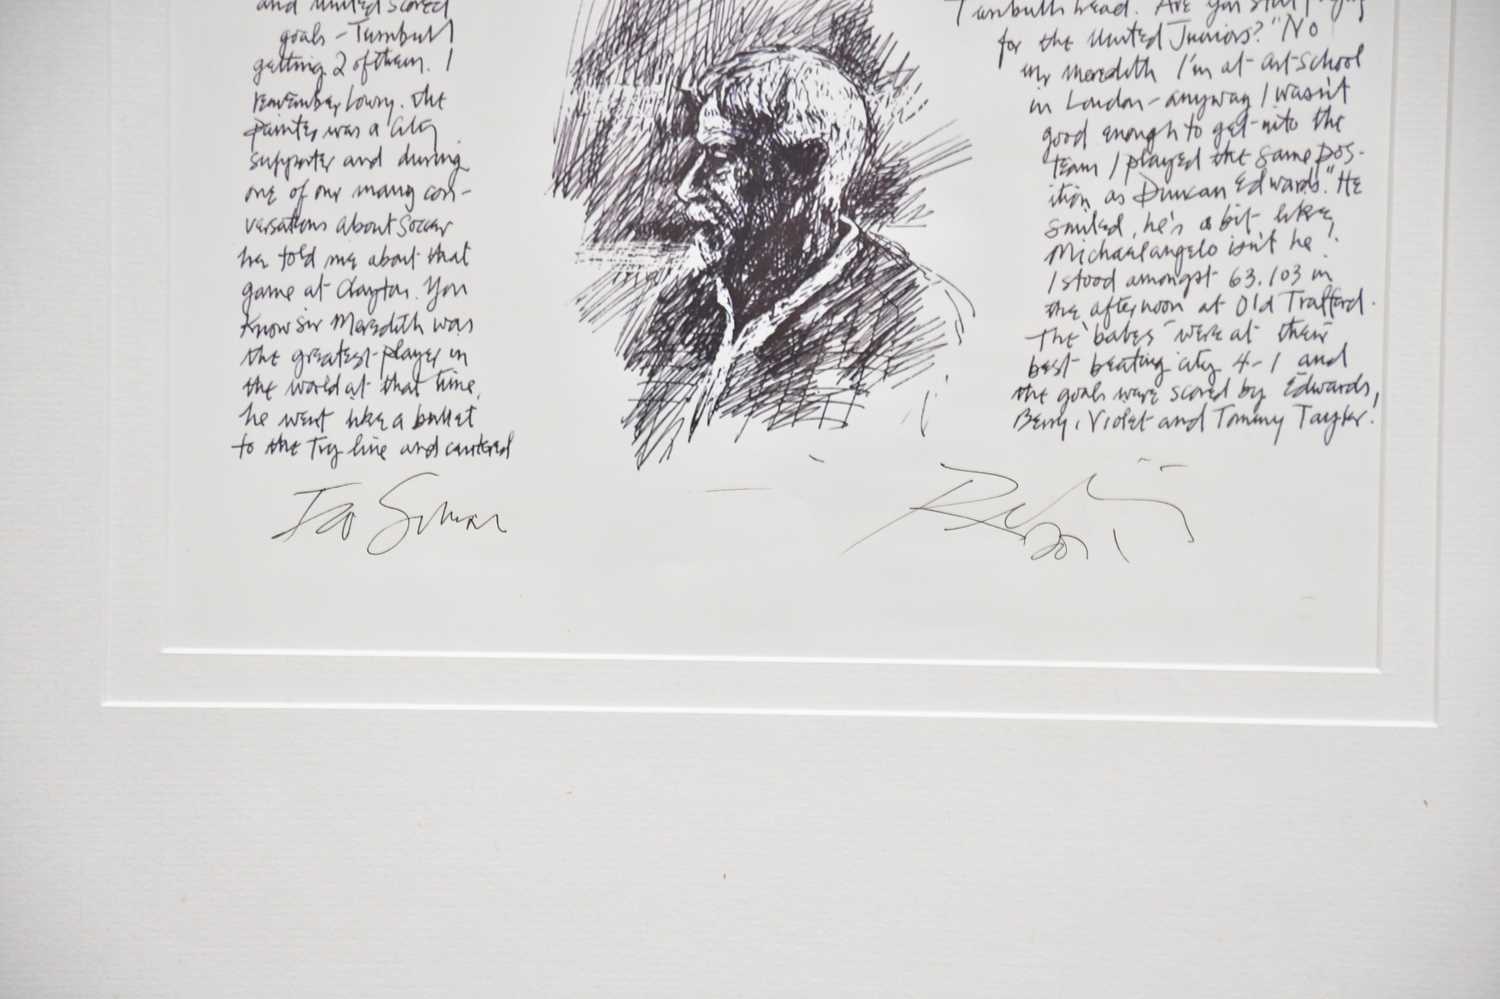 and United scored
goals - Turnbull
getting 2 of them. I
remember Lowry. the
Painter was a City
supporter and during
one of our many con-
versations about Soccer
he told me about that
game at Clayton. You
know sir Meredith was
the greatest player in
the world at that time.
he went like a bullet
to the Try line and centered
Turnbulls head. Are you still playing
for the United Juniors?" "No
mr Meredith I'm at art-School
in London - anyway I wasn't
good enough to get into the
team I played the same pos-
ition as Duncan Edwards." He
smiled, he's a bit like
Michaelangelo isn't he!
I stood amongst 63.103 in
the afternoon at Old Trafford.
The 'babes' were at their
best beating city 4-1 and
the goals were scored by Edwards,
Berry, Violet and Tommy Taylor!